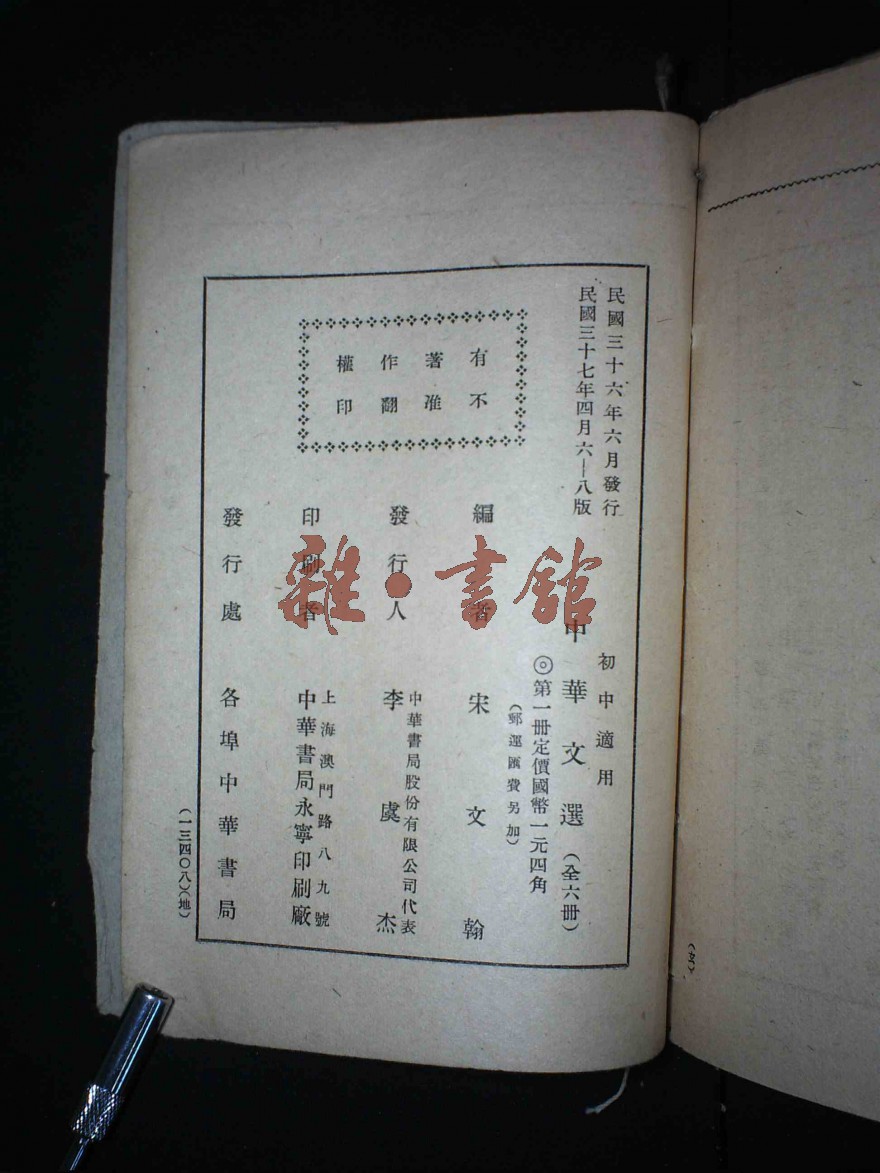 民國三十六年六月發行
民國三十七年四月六—八版
有不
著准
作翻
權印
初中適用
中華文選（全六冊）
◎第一冊定價國幣一元四角
（郵運匯費另加）
編者 宋文翰
發行人 中華書局股份有限公司代表
李虞杰
印刷者 上海澳門路八九號
中華書局永寧印刷廠
發行處 各埠中華書局
（一三四〇八）（地）
雜·書館